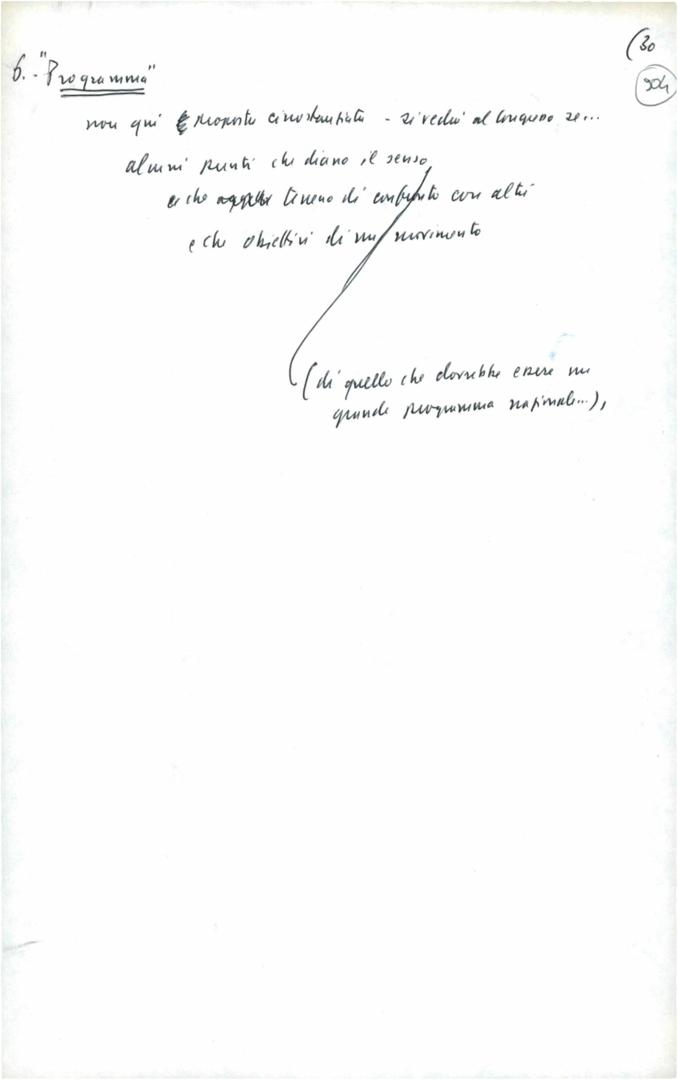 (30
304
6.- "Programma"
non qui proposta circostanziata - si vedrà al Congresso se...
alcuni punti che diano il senso,
e che terreno di confronto con altri
e che obiettivi di un movimento
(di quello che dovrebbe essere un
grande programma nazionale...),